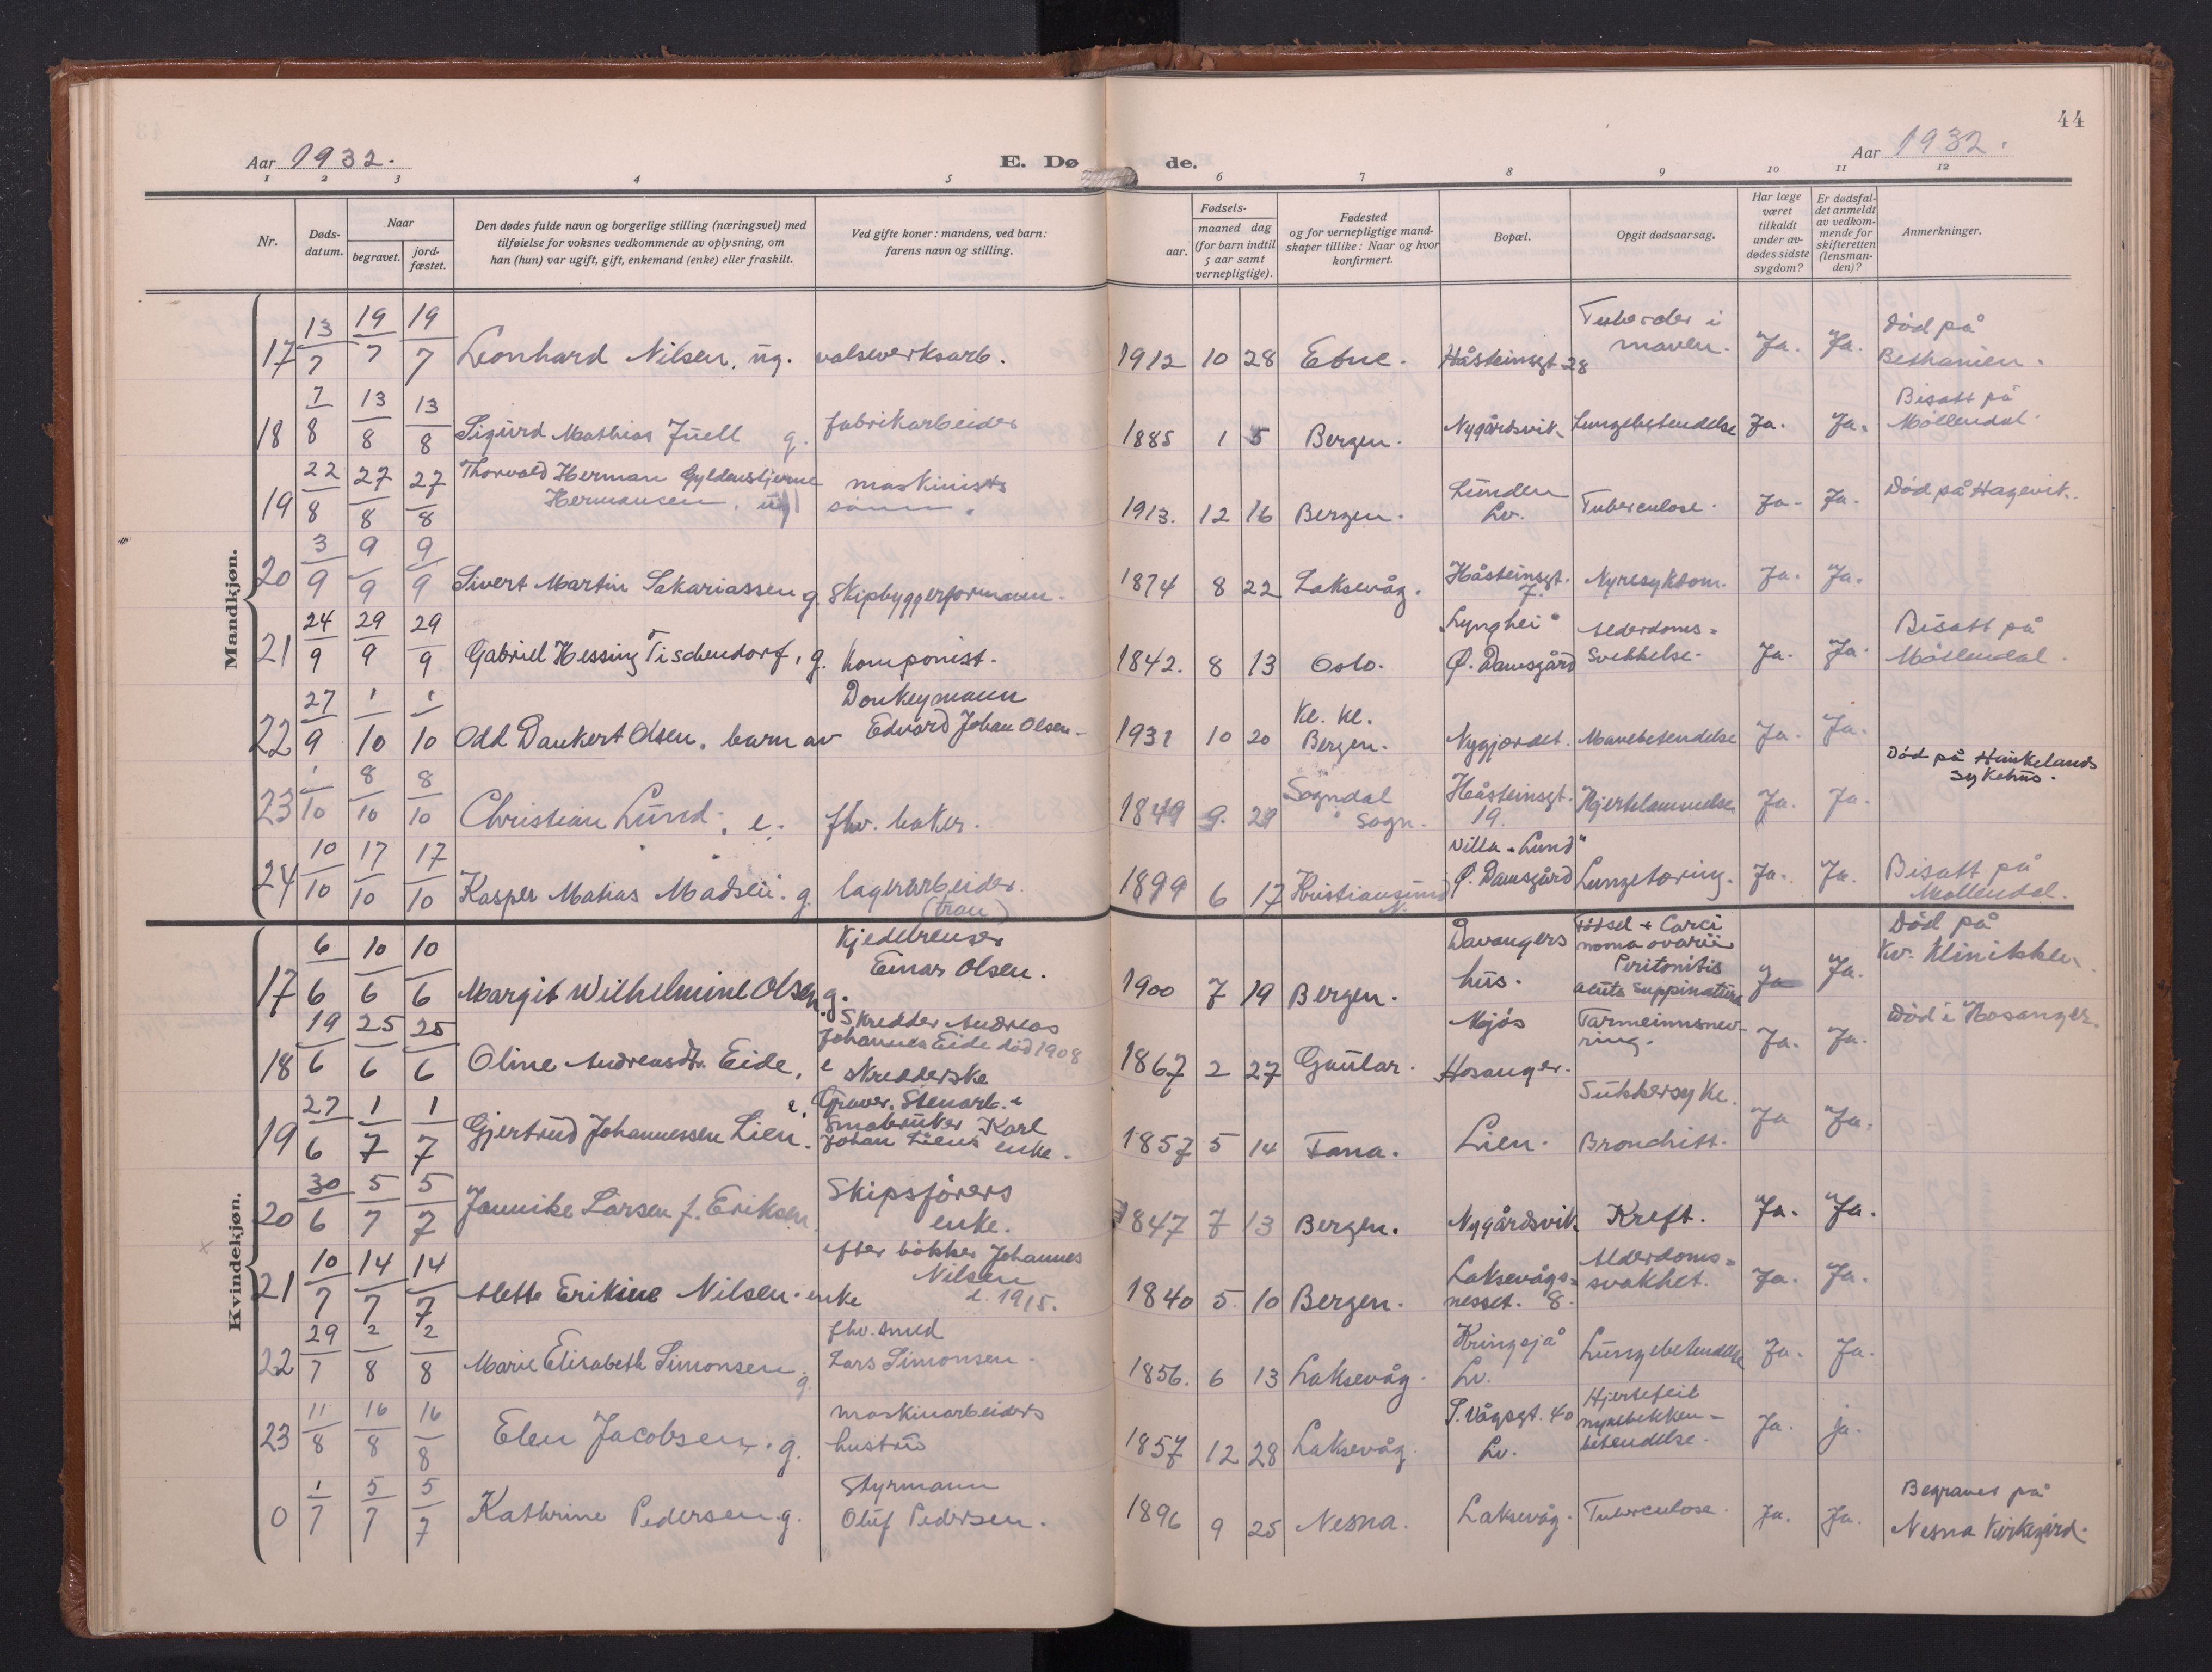 44
Aar 1932.
E. Dø de.
Aar 1932.
1 2 3 4 5 6 7 8 9 10 11 12
Nr.
Døds-
datum.
Naar
begravet.
jord-
fæstet.
Den dødes fulde navn og borgerlige stilling (næringsvei) med
tilføielse for voksnes vedkommende av oplysning, om
han (hun) var ugift, gift, enkemand (enke) eller fraskilt.
Ved gifte koner: mandens, ved barn:
farens navn og stilling.
Fødsels-
aar.
maaned dag
(for barn indtil
5 aar samt
vernepligtige).
Fødested
og for vernepligtige mand-
skaper tillike: Naar og hvor
konfirmert.
Bopæl.
Opgit dødsaarsag.
Har læge
været
tilkaldt
under av-
dødes sidste
sygdom?
Er dødsfal-
det anmeldt
av vedkom-
mende for
skifteretten
(lensman-
den)?
Anmerkninger.
Mandkjøn.
17 13/7 19/7 19/7 Leonhard Nilsen, ug. valseverksarb. 1912 10 28 Etne. Håsteinsgt. 28
Tubercler i
maven. Ja. Ja.
Død på
Bethanien.
18 7/8 13/8 13/8 Sigurd Mathias Juell g. fabrikarbeider 1885 1 5 Bergen. Nygårdsvik Lungebetendelse Ja. Ja.
Bisatt på
Møllendal.
19 22/8 27/8 27/8 Thorvald Herman Gyldenstjerne
Hermansen, ug.
maskinists
sønn. 1913. 12 16 Bergen.
Lunden
Lv. Tuberculose. Ja. Ja. Død på Hagevik.
20 3/9 9/9 9/9 Sivert Martin Sakariassen g. Skipbyggerformann. 1874 8 22 Laksevåg.
Håsteinsgt.
7. Nyresykdom. Ja. Ja.
21 24/9 29/9 29/9 Gabriel Hessing Tischendorf, g. Komponist. 1842. 8 13 Oslo.
"Lynghei"
Ø. Damsgård
Alderdoms-
Svekkelse. Ja. Ja.
Bisatt på
Møllendal.
22 27/9 1/10 1/10 Odd Dankert Olsen, barn av
Donkeymann
Edvard Johan Olsen. 1931 10 20
Kv. Kl.
Bergen. Nygjordet. Mavebetendelse Ja. Ja.
23 1/10 8/10 8/10 Christian Lund, e. fhv. baker. 1849 9. 29
Sogndal
i Sogn.
Håsteinsgt.
19. Hjertelammelse Ja. Ja.
Død på Haukelands
Sykehus.
24 10/10 17/10 17/10 Kasper Matias Madsen. g. lagerarbeider.
(tran) 1899 6 17 Kristiansund
N.
Villa "Lund"
Ø. Damsgård Lungetæring. Ja. Ja.
Bisatt på
Møllendal.
Kvindekjøn.
17 6/6 10/6 10/6 Margit Wilhelmine Olsen g.
Kjedelrenser
Einar Olsen. 1900 7 19 Bergen.
Davangers
hus.
Fødsel + Carci
noma ovarii
Peritonitis
acuta Suppinatura Ja Ja.
Død på
Kv. Klinikken.
18 19/6 25/6 25/6 Oline Andreasdtr. Eide, e
Skredder Andreas
Johannes Eide død 1908
skredderske 1867 2 27 Gaular.
Mjøs
Hosanger.
Tarmeinnsnev-
ring. Ja. Ja. Død i Hosanger.
19 27/6 1/7 1/7 Gjertrud Johannessen Lien. e.
Graver, Stenarb. &
Småbruker Karl
Johan Liens enke. 1857 5 14 Fana. Lien.
Sukkersyke.
Bronchitt. Ja Ja.
20 30/6 5/7 5/7 Jannike Larsen f. Eriksen.
Skipsførers
enke. 1847 7 13 Bergen. Nygårdsvik Kreft. Ja. Ja.
21 10/7 14/7 14/7 Mette Erikine Nilsen. enke
efter bøkker Johannes
Nilsen
d. 1915. 1840 5. 10 Bergen.
Laksevågs-
nesset. 8.
Alderdoms-
svakhet. Ja. Ja.
22 29/7 2/8 2/8 Marie Elisabeth Simonsen g.
fhv. smed
Lars Simonsen. 1856. 6 13 Laksevåg.
Kringsjå
Lv. Lungebetendelse Ja. Ja.
23 11/8 16/8 16/8 Elen Jacobsen. g.
maskinarbeiders
hustru 1857 12 28 Laksevåg.
P. Vågsgt. 40
Lv.
Hjertefeil
nyrebekken-
betendelse. Ja. ja.
0 1/7 5/7 5/7 Kathrine Pedersen. g.
Styrmann
Oluf Pedersen. 1896 9 25 Nesna. Laksevåg. Tuberculose. Ja. Ja.
Begravet på
Nesna Kirkegård.